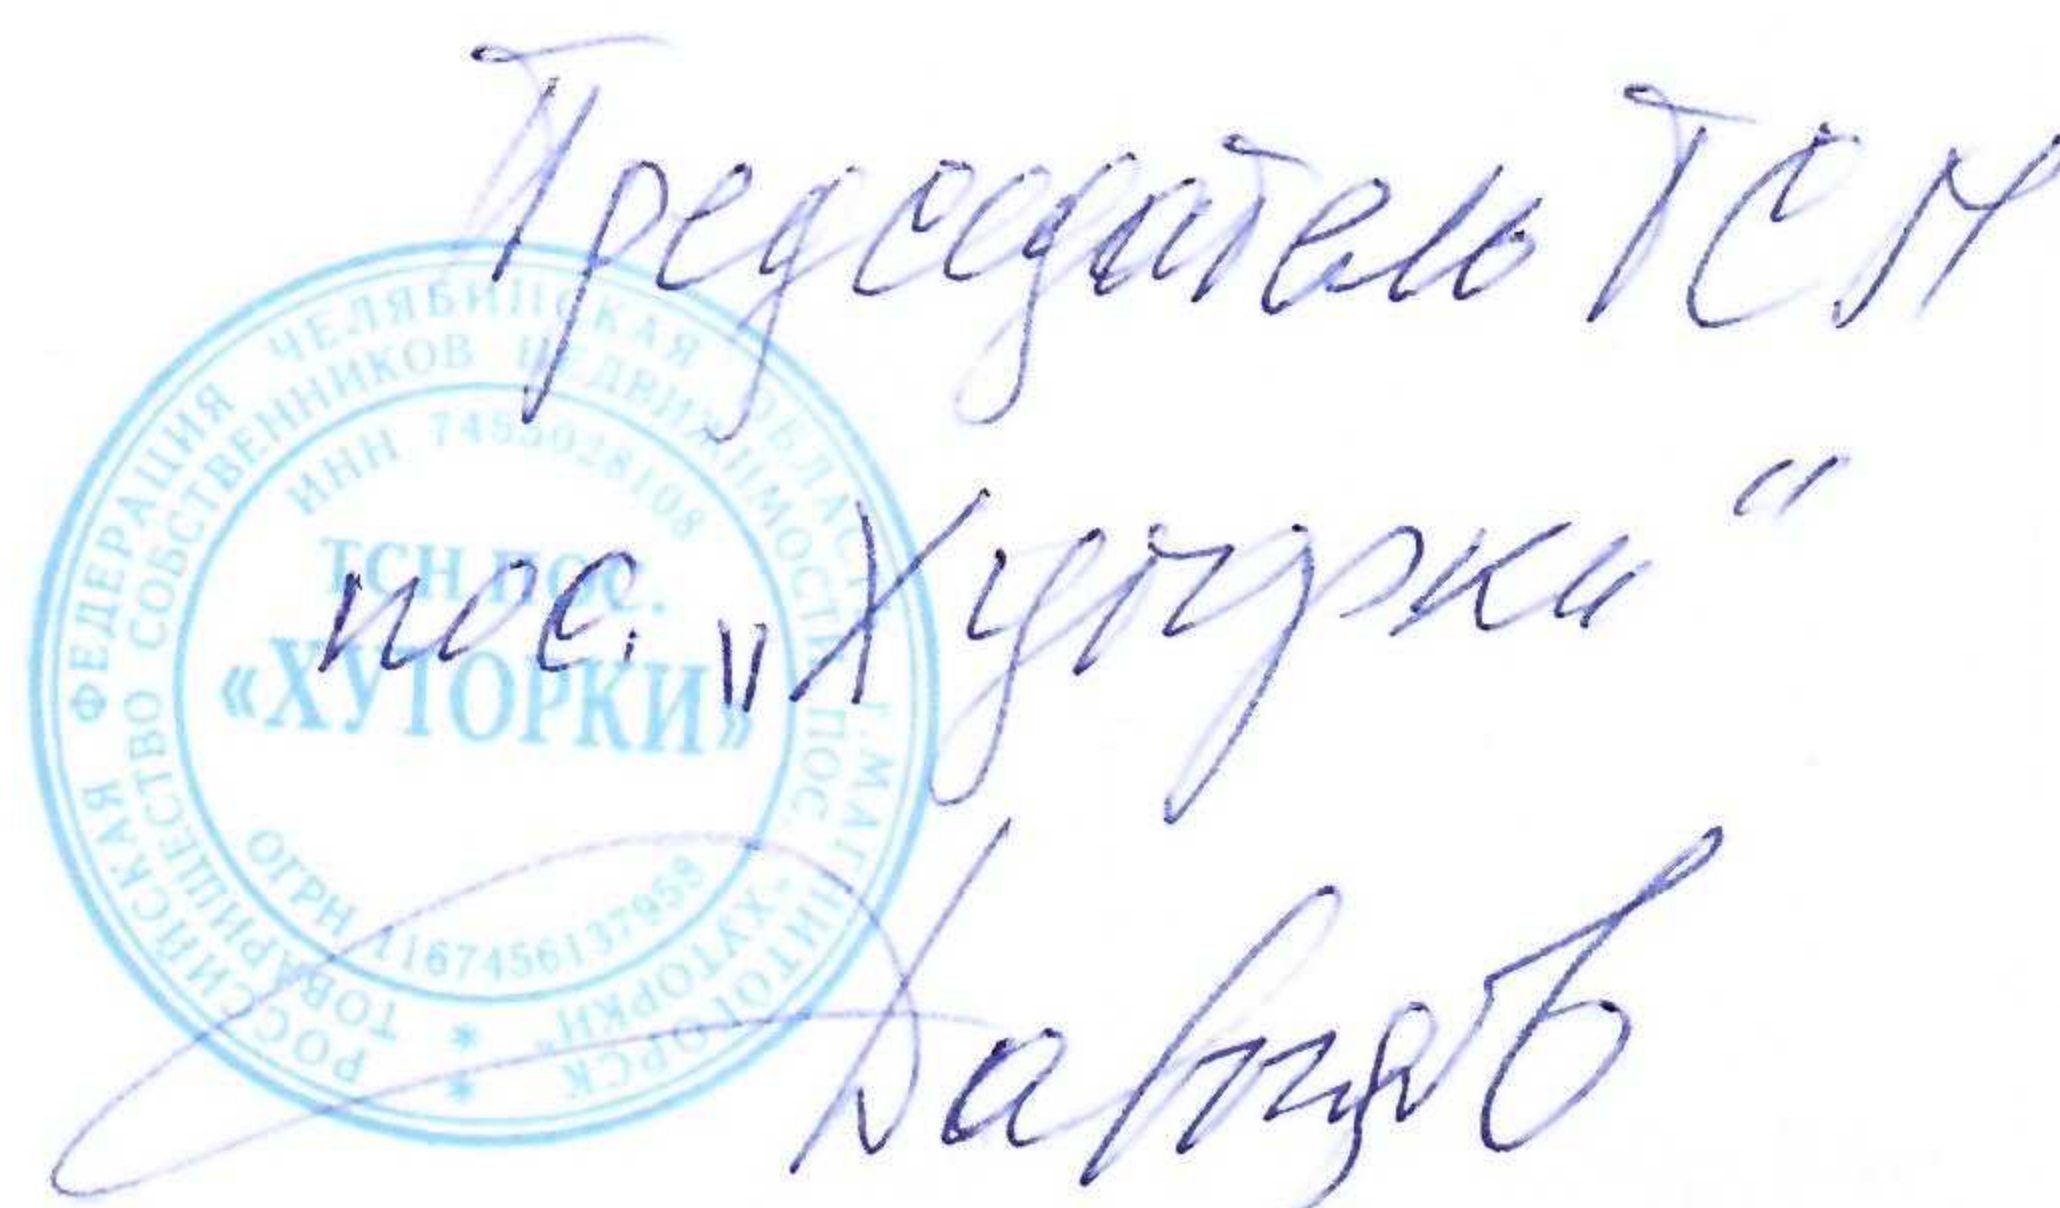 Председатель ТСН
пос. „Хуторки“
РОССИЙСКАЯ ФЕДЕРАЦИЯ ЧЕЛЯБИНСКАЯ ОБЛАСТЬ Г. МАГНИТОГОРСК
ТОВАРИЩЕСТВО СОБСТВЕННИКОВ НЕДВИЖИМОСТИ ПОС. "ХУТОРКИ"
ИНН 7455028108
ТСН ПОС.
«ХУТОРКИ»
ОГРН 1167456137958